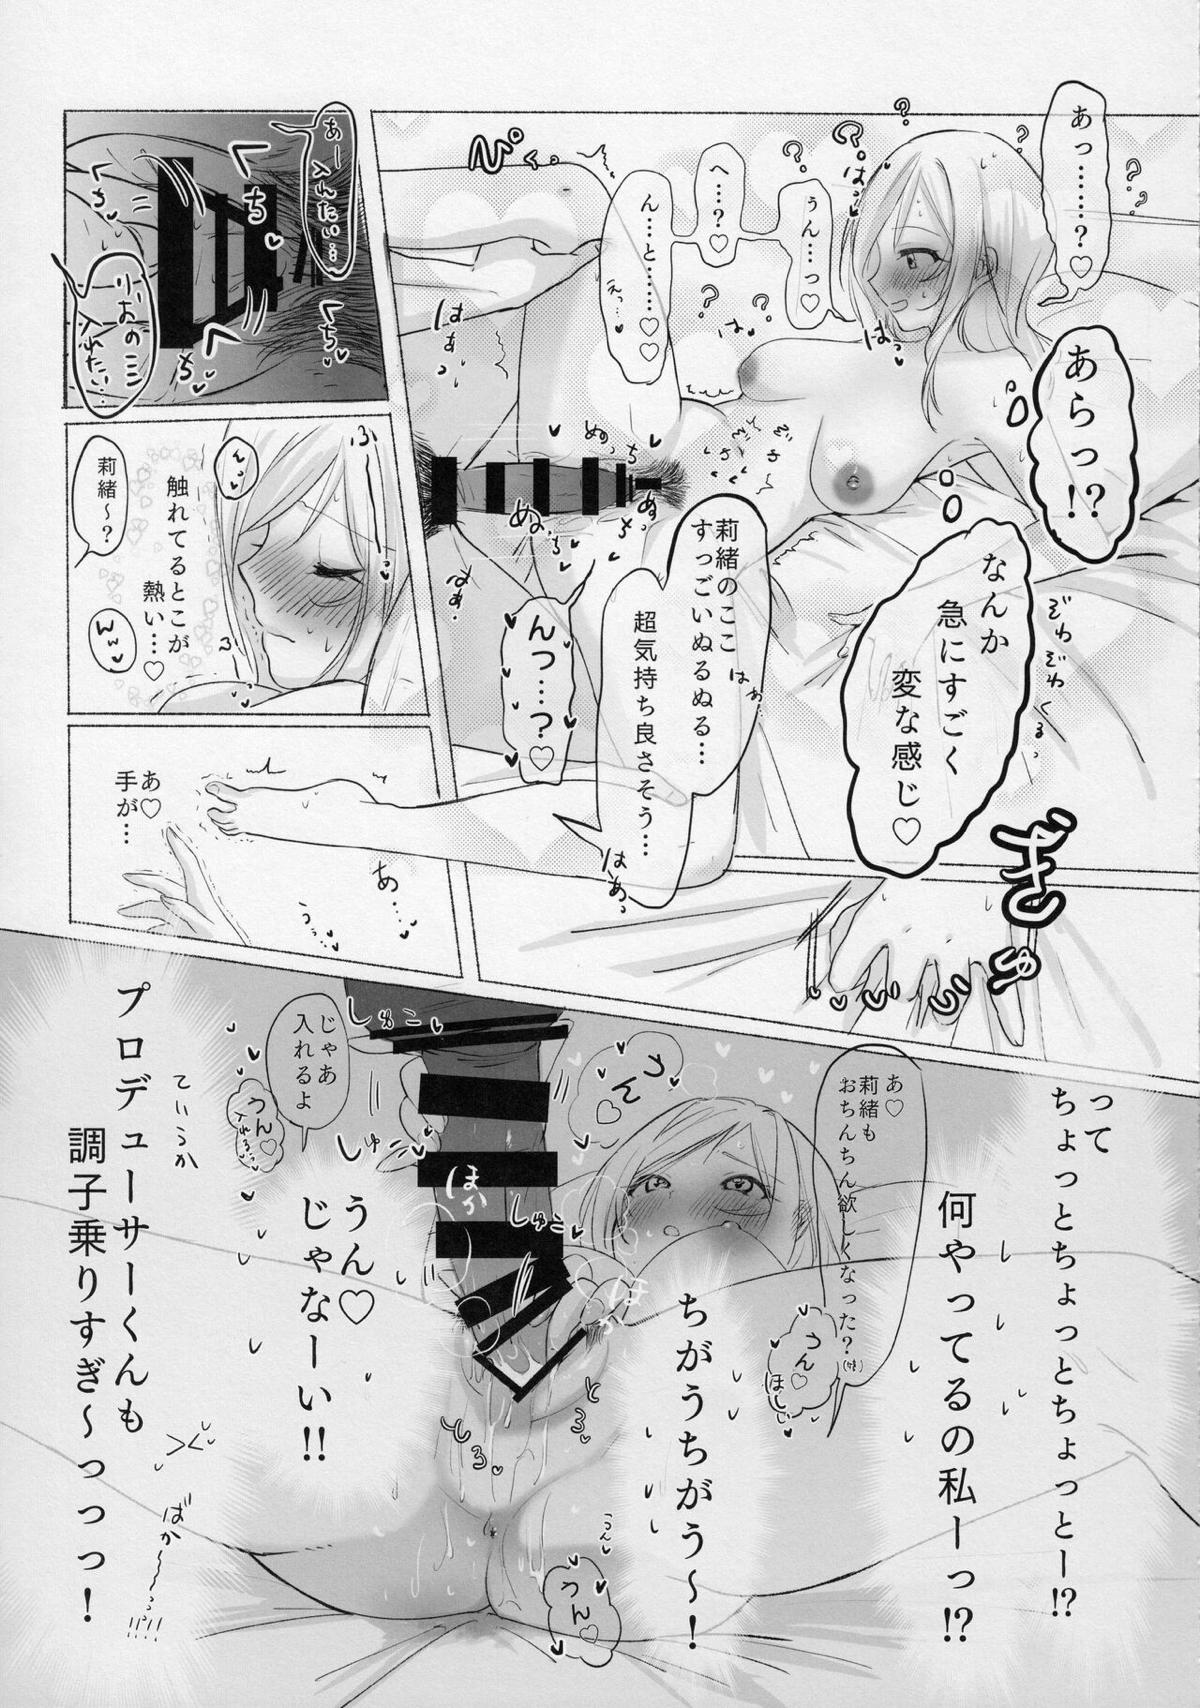 あっ……?♡
ぅん…っ♡
へ…?♡
ん…と……♡♡
えっ…
ぴくっ
はっ
はぁっ
あらっ!?
なんか
急にすごく
変な感じ♡
ぞわぞわ
くるっ
莉緒のここ
すっごいぬるぬる…
超気持ち良さそう…
はぁ
はぁっ
んっ…?♡
ぬっち
ぬっち
ぞわ
ぞわ
あー入れたい…
りおのミ
入れたい…
くち
くち
くち
莉緒〜?
触れてるとこが
熱い…♡
んっ
ふー
ふー
あ♡
手が…
あ…
ぎゅ
って
ちょっとちょっとちょっとー!?
何やってるの私ーっ!?
あ♡
莉緒も
おちんちん欲しくなった?
うん♡
ほしい
ちがうちがう〜!
うん♡
じゃあ
入れるよ
うん♡
入れる
うん♡
じゃなーい!!
しゅこ
しゅこ
しゅこ
ほか
ほか
とろ
とろ
うん
うん♡
ていうか
プロデューサーくんも
調子乗りすぎ〜っっっ!
ばか〜〜っ!!!!